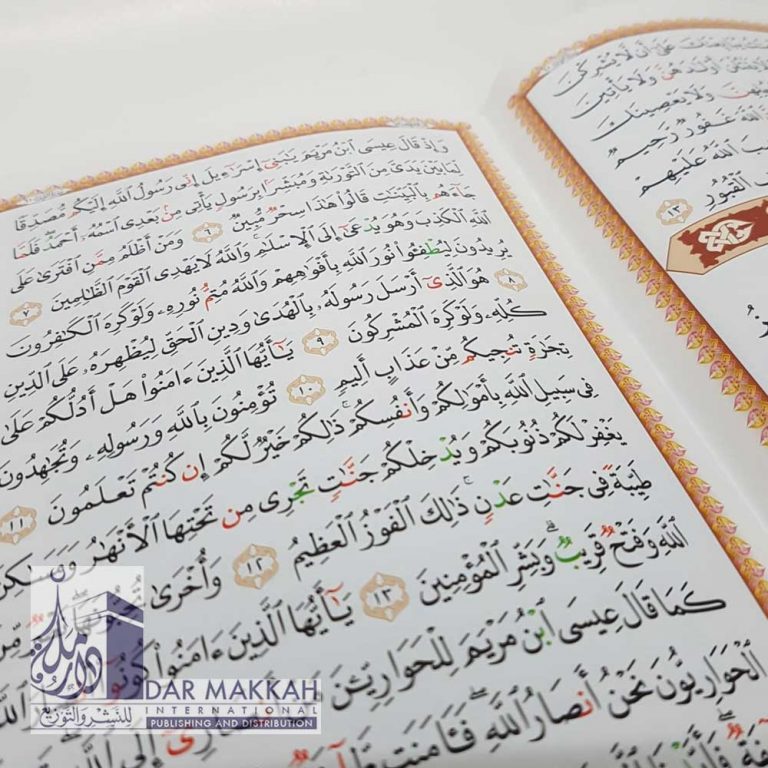 عَلَىٰٓ أَن لَّا يُشْرِكْنَ
أَوْلَٰدَهُنَّ وَلَا يَأْتِينَ
وَلَا يَعْصِينَكَ
ٱللَّهَ غَفُورٌ رَّحِيمٌ
ٱللَّهُ عَلَيْهِمْ
ٱلْقُبُورِ ١٣
وَإِذْ قَالَ عِيسَى ٱبْنُ مَرْيَمَ يَٰبَنِىٓ إِسْرَٰٓءِيلَ إِنِّى رَسُولُ ٱللَّهِ إِلَيْكُم مُّصَدِّقًا
لِّمَا بَيْنَ يَدَىَّ مِنَ ٱلتَّوْرَىٰةِ وَمُبَشِّرًۢا بِرَسُولٍ يَأْتِى مِنۢ بَعْدِى ٱسْمُهُۥٓ أَحْمَدُ ۖ فَلَمَّا
جَآءَهُم بِٱلْبَيِّنَٰتِ قَالُوا۟ هَٰذَا سِحْرٌ مُّبِينٌ ٦ وَمَنْ أَظْلَمُ مِمَّنِ ٱفْتَرَىٰ عَلَى
ٱللَّهِ ٱلْكَذِبَ وَهُوَ يُدْعَىٰٓ إِلَى ٱلْإِسْلَٰمِ ۚ وَٱللَّهُ لَا يَهْدِى ٱلْقَوْمَ ٱلظَّٰلِمِينَ ٧
يُرِيدُونَ لِيُطْفِـُٔوا۟ نُورَ ٱللَّهِ بِأَفْوَٰهِهِمْ وَٱللَّهُ مُتِمُّ نُورِهِۦ وَلَوْ كَرِهَ ٱلْكَٰفِرُونَ
٨ هُوَ ٱلَّذِىٓ أَرْسَلَ رَسُولَهُۥ بِٱلْهُدَىٰ وَدِينِ ٱلْحَقِّ لِيُظْهِرَهُۥ عَلَى ٱلدِّينِ
كُلِّهِۦ وَلَوْ كَرِهَ ٱلْمُشْرِكُونَ ٩ يَٰٓأَيُّهَا ٱلَّذِينَ ءَامَنُوا۟ هَلْ أَدُلُّكُمْ عَلَىٰ
تِجَٰرَةٍ تُنجِيكُم مِّنْ عَذَابٍ أَلِيمٍ ١٠ تُؤْمِنُونَ بِٱللَّهِ وَرَسُولِهِۦ وَتُجَٰهِدُونَ
فِى سَبِيلِ ٱللَّهِ بِأَمْوَٰلِكُمْ وَأَنفُسِكُمْ ۚ ذَٰلِكُمْ خَيْرٌ لَّكُمْ إِن كُنتُمْ تَعْلَمُونَ ١١
يَغْفِرْ لَكُمْ ذُنُوبَكُمْ وَيُدْخِلْكُمْ جَنَّٰتٍ تَجْرِى مِن تَحْتِهَا ٱلْأَنْهَٰرُ وَمَسَٰكِنَ
طَيِّبَةً فِى جَنَّٰتِ عَدْنٍ ۚ ذَٰلِكَ ٱلْفَوْزُ ٱلْعَظِيمُ ١٢ وَأُخْرَىٰ تُحِبُّونَهَا ۖ مِّنَ
ٱللَّهِ وَفَتْحٌ قَرِيبٌ ۗ وَبَشِّرِ ٱلْمُؤْمِنِينَ ١٣ يَٰٓأَيُّهَا ٱلَّذِينَ ءَامَنُوا۟ كُونُوٓا۟
كَمَا قَالَ عِيسَى ٱبْنُ مَرْيَمَ لِلْحَوَارِيِّـۧنَ أَنصَارِىٓ إِلَى ٱللَّهِ ۖ
ٱلْحَوَارِيُّونَ نَحْنُ أَنصَارُ ٱللَّهِ ۖ فَـَٔامَنَت
دار مكة
للنشر والتوزيع
DAR MAKKAH
INTERNATIONAL
PUBLISHING AND DISTRIBUTION